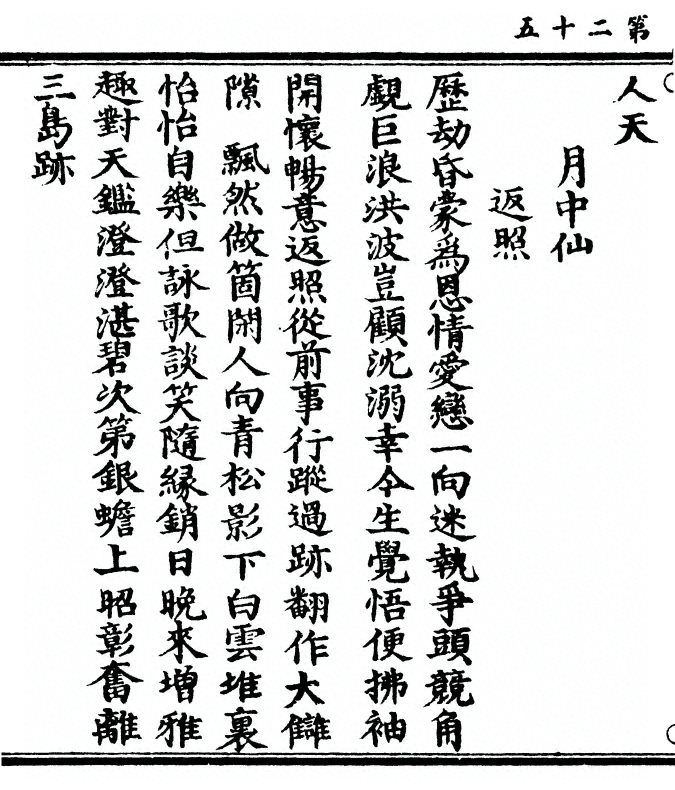 第二十五
人天
月中仙
返照
歷劫昏蒙爲恩情愛戀一向迷執爭頭競角
覷巨浪洪波豈顧沈溺幸今生覺悟便拂袖
開懷暢意返照從前事行蹤過跡翻作大讎
隙 飄然做箇閑人向青松影下白雲堆裏
怡怡自樂但詠歌談笑隨緣銷日晚來增雅
趣對天鑑澄澄湛碧次第銀蟾上昭彰奮離
三島跡